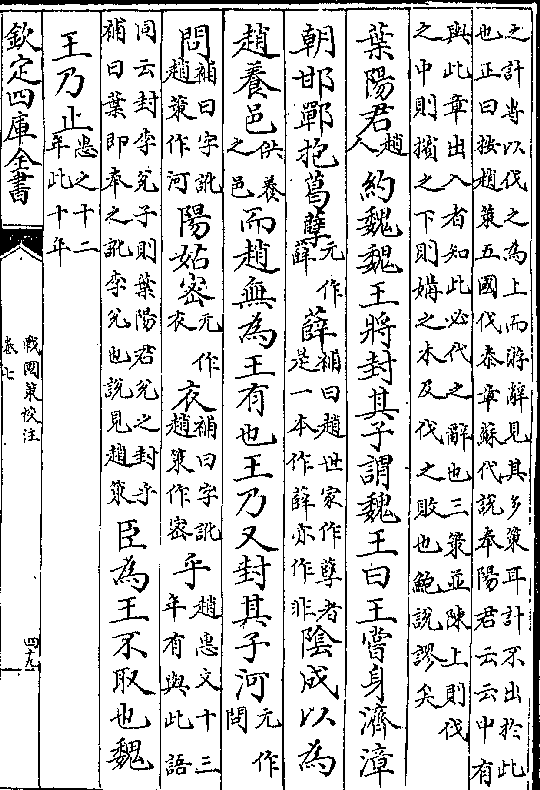 之計專以伐之為上而游辭見其多策耳計不出於此
也正曰按趙策五國伐秦章蘇代說奉陽君云云中有
與此章出入者知此必代之辭也三策並陳上則伐
之中則擯之下則媾之本及伐之敗也鮑說謬矣
葉陽君趙人約魏魏王將封其子謂魏王曰王嘗身濟漳
朝邯鄲抱葛孽元作薛薛補曰趙世家作孽者是一本作薛亦作非陰成以為
趙養邑供養之邑而趙無為王有也王乃又封其子河元作問
問補曰字訛趙策作河陽姑密元作衣衣補曰字訛趙策作密乎趙惠文十三年有與此語
同云封李兌子則葉陽君兌之封乎補曰葉即奉之訛李兌也說見趙策臣為王不取也魏
王乃止惠之十二年此十年
欽定四庫全書
戰國策校注
卷七
四十九